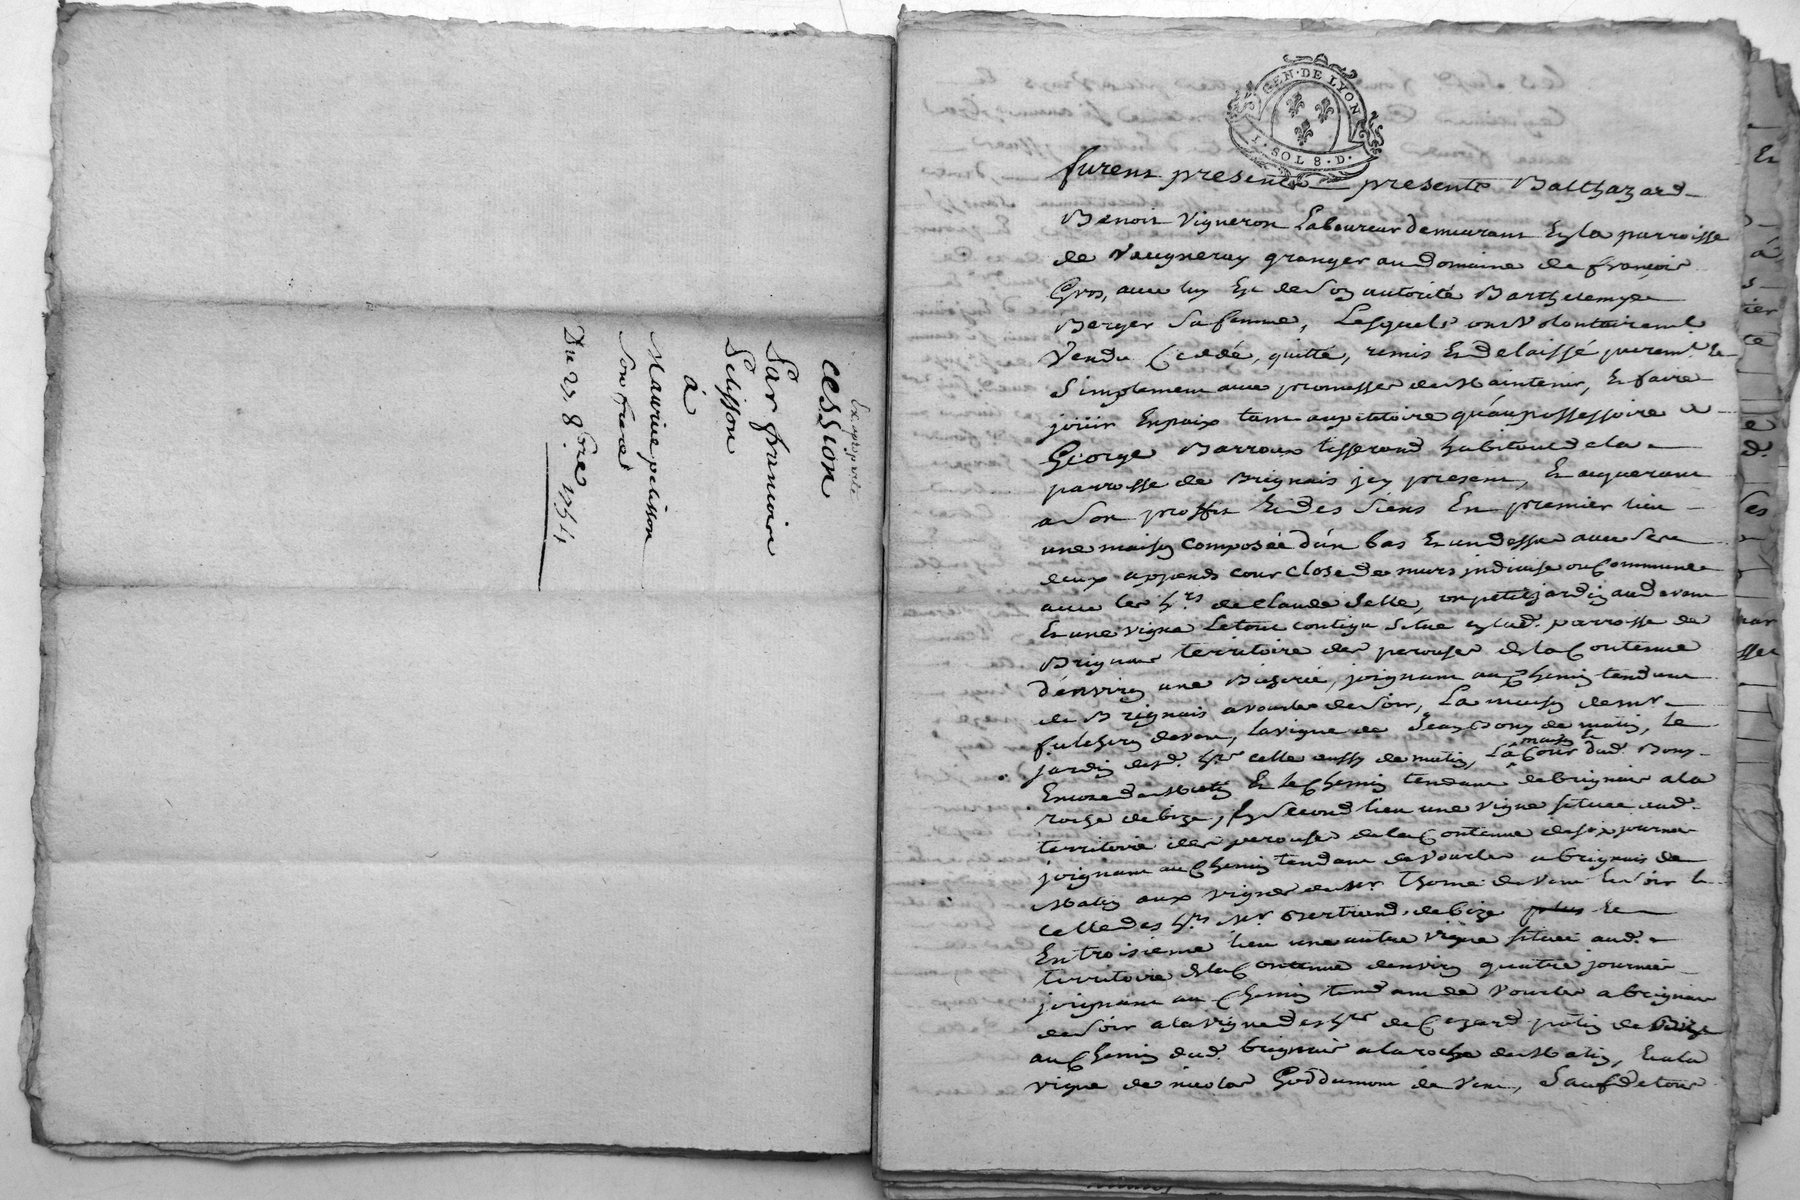 Ex. apr. proto
cession
Par francoise
Pelisson
à
Maurice pelisson
son frere
Du 23 8bre 1754
GEN·DE LYON
I·SOL 8·D·
furent presente presente Balthazard
Benoit Vigneron Laboureur demeurant En la parroisse
de Vaugneray granger au domaine de francois
Gros, avec luy Et de son autorité Barthelemye
Berger sa femme, Lesquels ont Volontairemt.
Vendu Ceddé, quitté, remis Et delaissé puremt. Et
Simplement avec promesse de Maintenir, Et faire
joüir En paix tant au petitoire qu'au possessoire a
George Barroux tisserand habitant de la
parroisse de Brignais jcy present, Et aquerant
a Son proffit Et des Siens En premier lieu
une maison composée d'un bas Et un dessus avec
deux appends cour close de murs jndivise ou Commune
avec les hrs. de Claude Selle, un petit jardin au devant
Et une vigne Le tout contigu Situé en lad. parroisse de
Brignais territoire des perouses de la Contenue
d'environ une Bicherée, joignant au Chemin tendant
de Brignais a vourles de Soir, La maison de Mr.
fulchiron de vent, la vigne de Jean Bony de matin, le
jardin desd. hrs. celle aussy de matin, La Cour dud. Bony
maison Et
Encore de Matin Et le Chemin tendant de brignais a la
roche de bize, En Second lieu une vigne située aud.
territoire des perouses de la Contenue de six journée
joignant au Chemin tendant de Vourles a brignais de
Matin aux vignes de Mr. Thomé de Vent Et Soir Et
celle des hrs. Mr. Bertrand de bize plus Et
En troisieme lieu une autre vigne située aud.
territoire de la Contenue d'environ quatre journée
joignant au Chemin tendant de Vourles a brignais
de Soir a la vigne des hrs. de Cezard de Bize
au Chemin dud. brignais a la roche de Matin, Et a la
vigne de nicolas de Vent, Sauf de tous